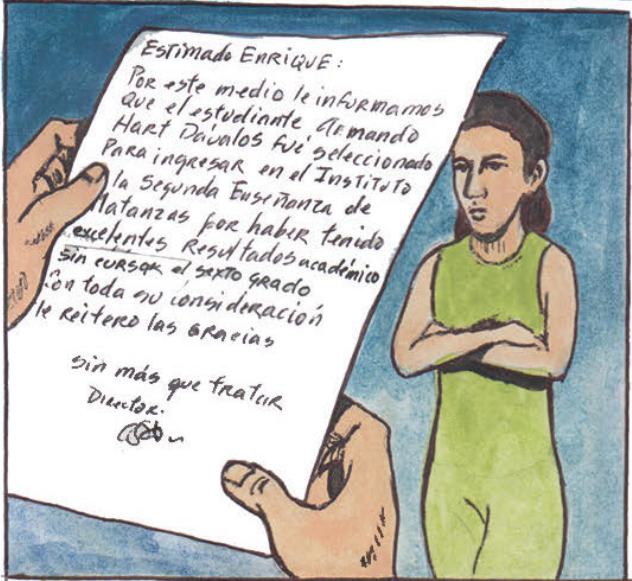 Estimado ENRIQUE:
Por este medio le informamos
Que el estudiante, Armando
Hart Dávalos fué seleccionado
Para ingresar en el Instituto
la Segunda Enseñanza de
Matanzas por haber tenido
excelentes Resultados académico
sin cursar el sexto grado
Con toda su consideración
le reitero las GRacias
sin más que tratar
Director.